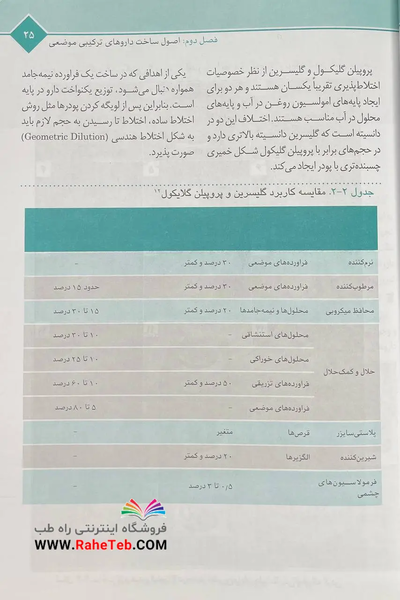 ۳۵
فصل دوم: اصول ساخت داروهای ترکیبی موضعی
پروپیلن گلیکول و گلیسرین از نظر خصوصیات
اختلاط‌پذیری تقریباً یکسان هستند و هر دو برای
ایجاد پایه‌های امولسیون روغن در آب و پایه‌های
محلول در آب مناسب هستند. اختلاف این دو در
دانسیته است که گلیسرین دانسیته بالاتری دارد و
در حجم‌های برابر با پروپیلن گلیکول شکل خمیری
چسبنده‌تری با پودر ایجاد می‌کند.
یکی از اهدافی که در ساخت یک فراورده نیمه‌جامد
همواره دنبال می‌شود، توزیع یکنواخت دارو در پایه
است. بنابراین پس از لویگه کردن پودرها مثل روش
اختلاط ساده، اختلاط تا رسیدن به حجم لازم باید
به شکل اختلاط هندسی (Geometric Dilution)
صورت پذیرد.
جدول ۲-۲. مقایسه کاربرد گلیسرین و پروپیلن گلایکول۱۲
نرم‌کننده فراورده‌های موضعی ۳۰ درصد و کمتر -
مرطوب‌کننده فراورده‌های موضعی ۳۰ درصد و کمتر حدود ۱۵ درصد
محافظ میکروبی محلول‌ها و نیمه‌جامدها ۲۰ درصد و کمتر ۱۵ تا ۳۰ درصد
حلال و کمک‌حلال محلول‌های استنشاقی - ۱۰ تا ۳۰ درصد
محلول‌های خوراکی - ۱۰ تا ۲۵ درصد
فراورده‌های تزریقی ۵۰ درصد و کمتر ۱۰ تا ۶۰ درصد
فراورده‌های موضعی - ۵ تا ۸۰ درصد
پلاستی‌سایزر قرص‌ها متغیر -
شیرین‌کننده الگزیرها ۲۰ درصد و کمتر -
فرمولاسیون‌های ۰٫۵ تا ۳ درصد -
چشمی
فروشگاه اینترنتی راه طب
www.RaheTeb.com